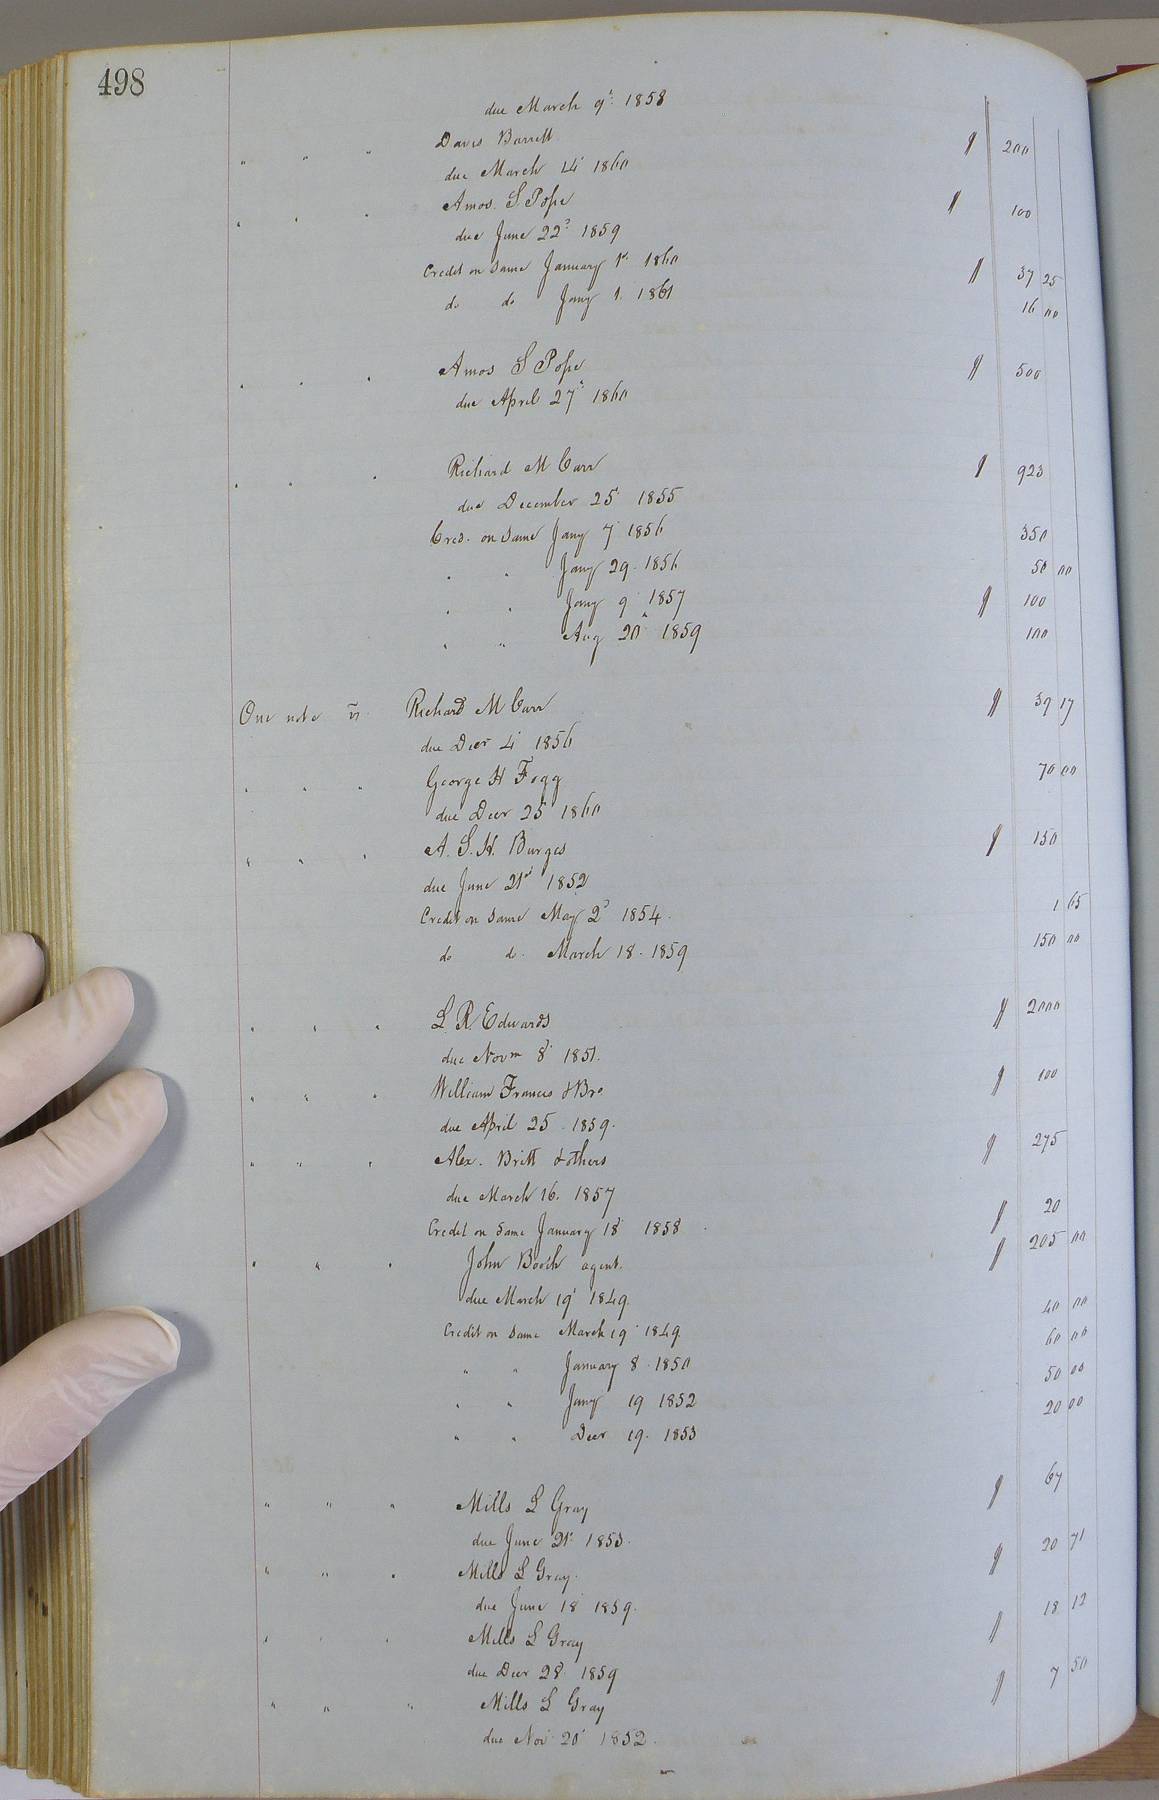 498
due March 9th 1858
" " " Davis Barrett $ 200
due March 14th 1860
" " " Amos. S Pope $ 100
due June 22d 1859
Credit on same January 1st 1860 $ 37 25
do do Jany 1. 1861 16 00
" " " Amos S Pope $ 500
due April 27th 1860
" " " Richard M Carr $ 923
due December 25th 1855
Cred. on same Jany 7th 1856 350
" " Jany 29. 1856 50 00
" " Jany 9th 1857 $ 100
" " Aug 20th 1859 100
One note vs Richard M Carr $ 39 17
due Decr 4th 1856
" " " George H Fogg 70 00
due Decr 25th 1860
" " " A. S. H. Burges $ 150
due June 21st 1852
Credit on same May 2d 1854. 1 65
do do. March 18. 1859 150 00
" " " L. R Edwards $ 2000
due Novm 8th 1851.
" " " William Francis & Bro $ 100
due April 25. 1859.
" " " Alex. Britt & others $ 275
due March 16. 1857
Credit on same January 18th 1858 $ 20
" " " John Booth agent. $ 205 00
due March 19th 1849.
Credit on same March 19th 1849 40 00
" " January 8. 1850 60 00
" " Jany 19 1852 50 00
" " Decr 19. 1853 20 00
" " " Mills L Gray $ 67
due June 21st 1853.
" " " Mills L Gray. $ 20 71
due June 18th 1859.
" " " Mills L Gray $ 18 12
due Decr 28th 1859
" " " Mills L Gray $ 7 50
due Nov 20th 1852.